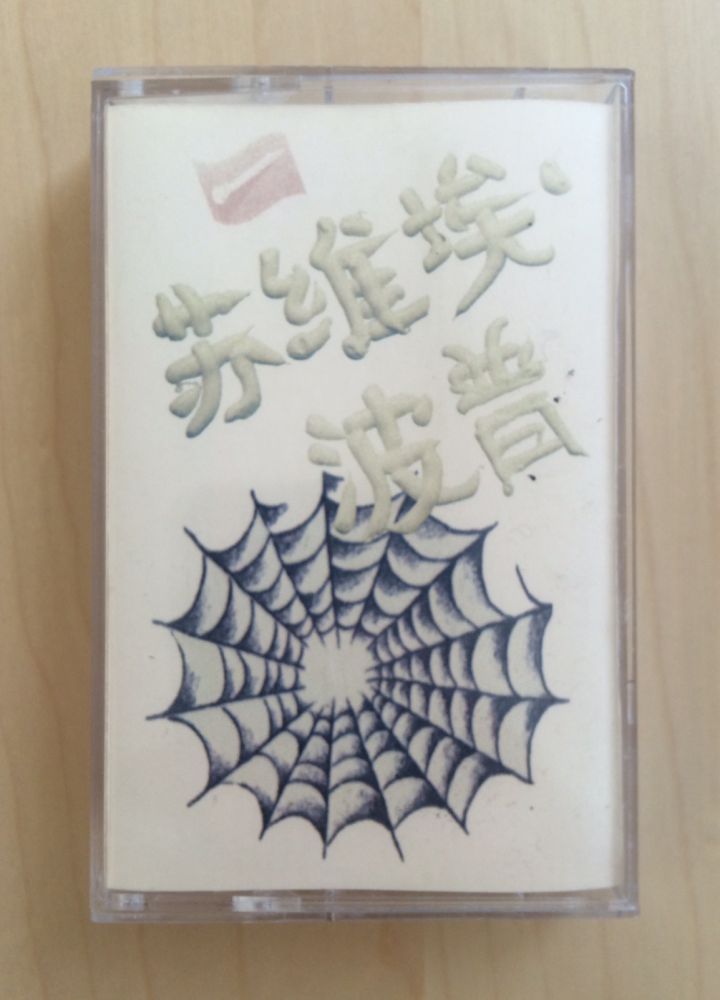 苏维埃·
波普